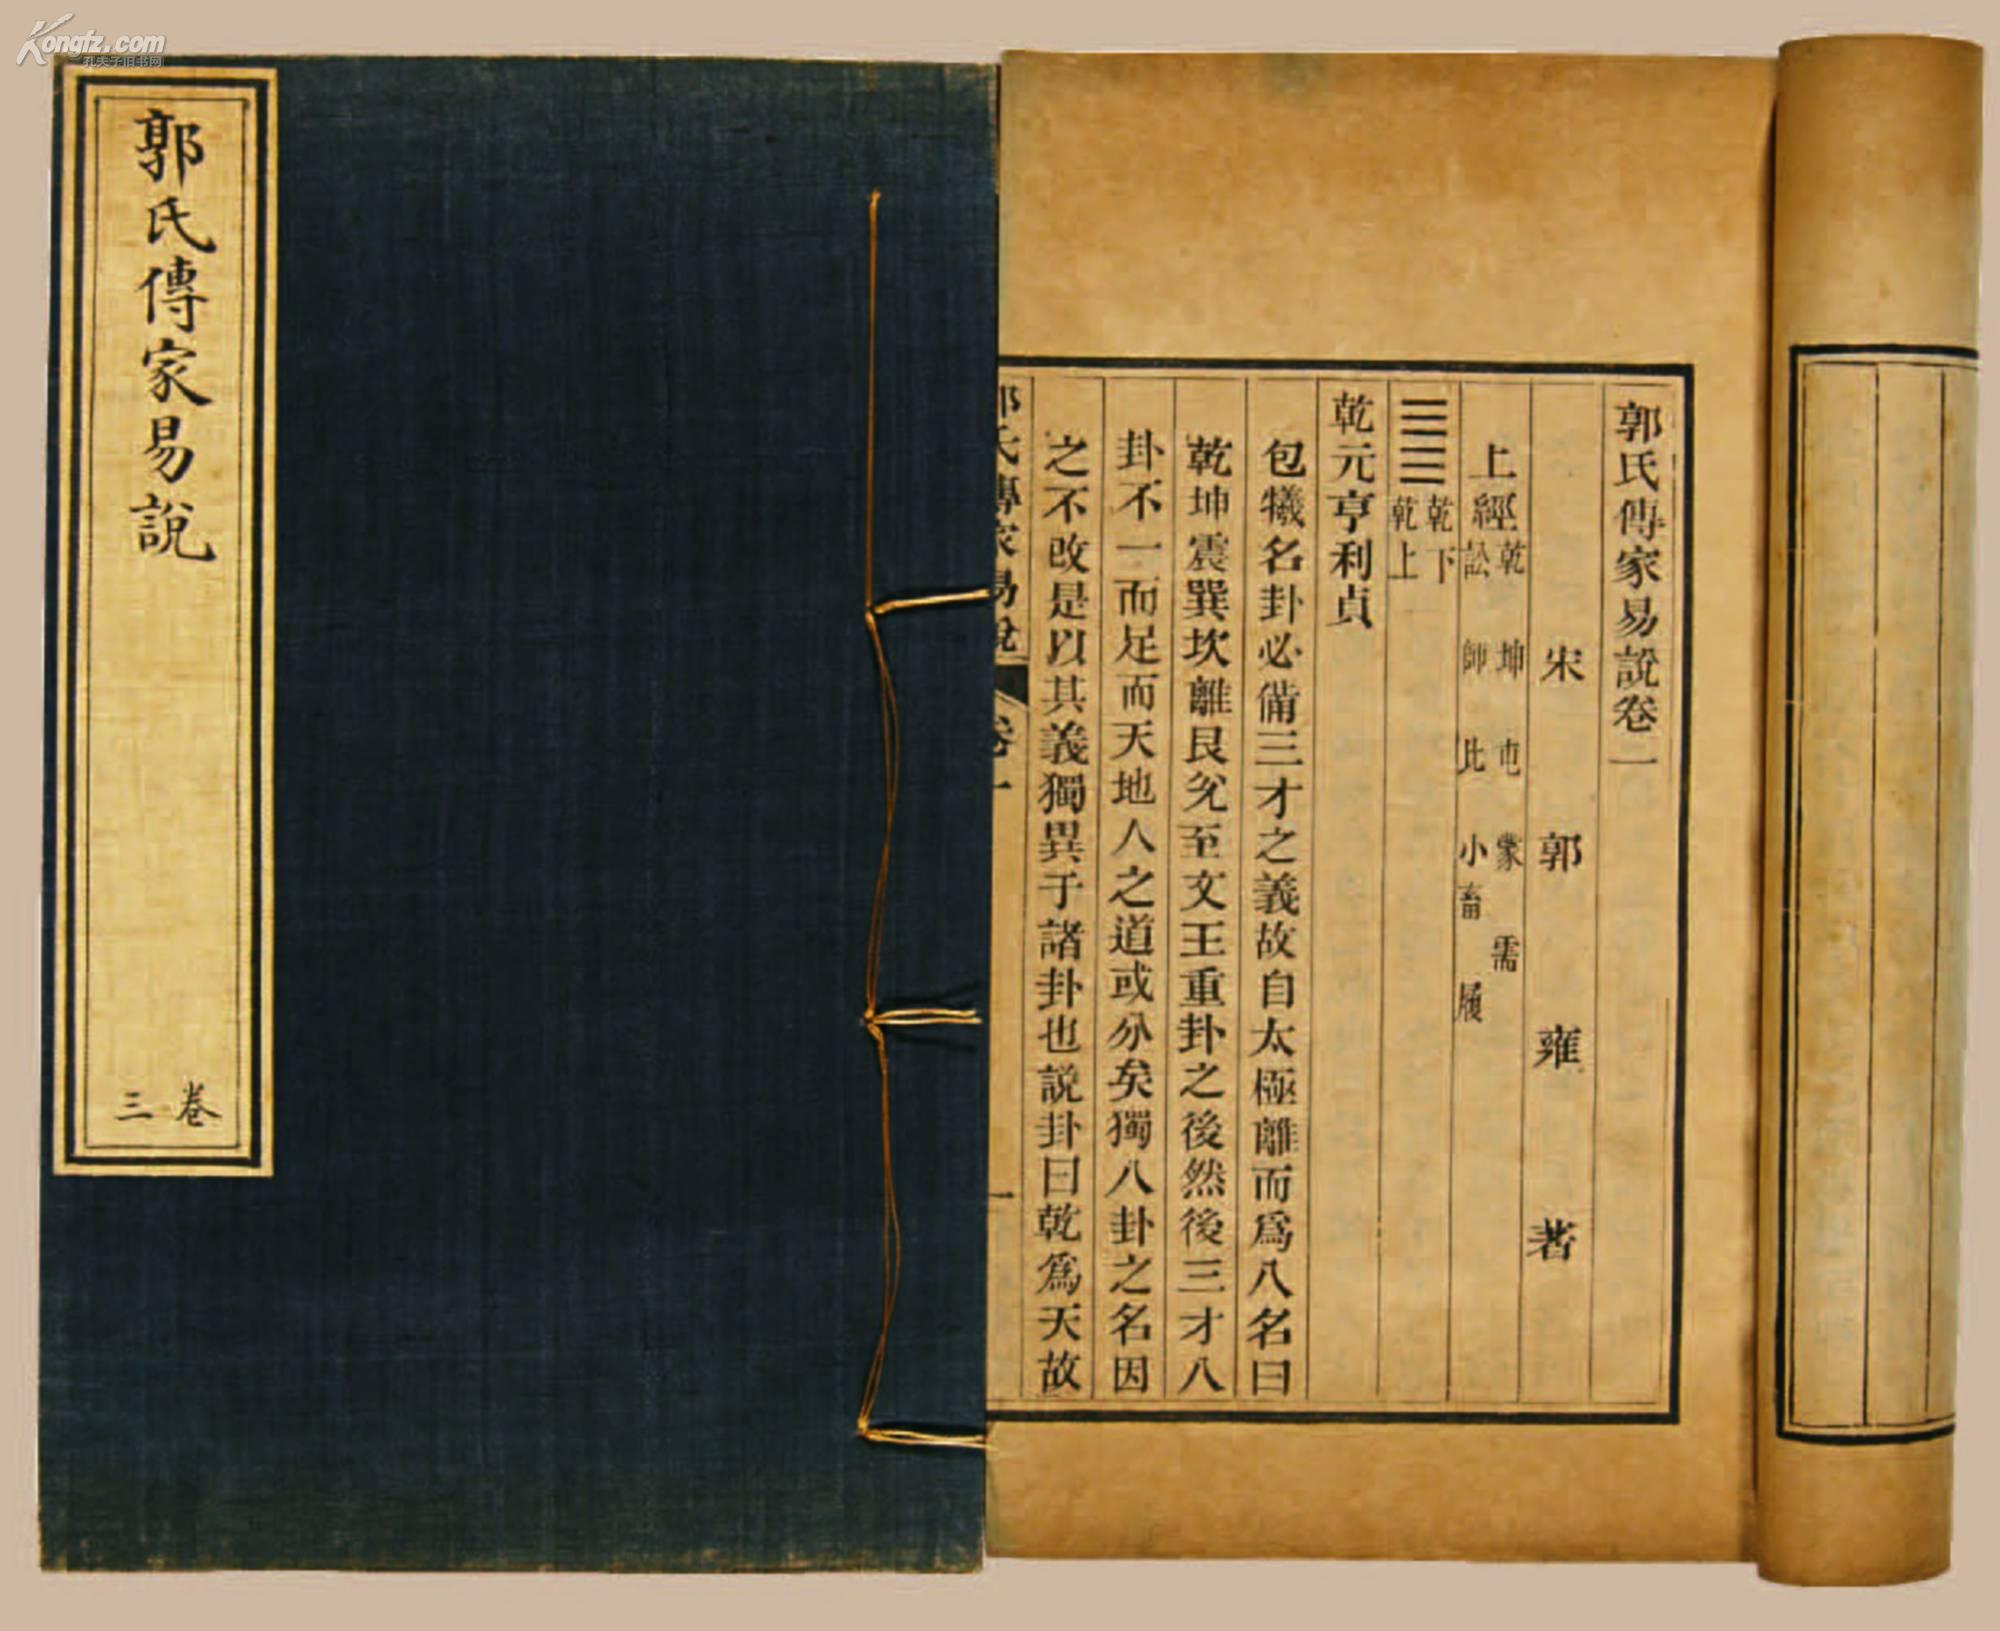 Kongfz.com
孔夫子旧书网
郭氏傳家易說
卷三
郭氏傳家易說卷一
宋 郭 雍 著
上經 乾 坤 屯 蒙 需
訟 師 比 小畜 履
乾下
乾上
乾元亨利貞
包犧名卦必備三才之義故自太極離而爲八名曰
乾坤震巽坎離艮兌至文王重卦之後然後三才八
卦不一而足而天地人之道或分矣獨八卦之名因
之不改是以其義獨異于諸卦也説卦曰乾爲天故
郭氏傳家易說 卷一 一